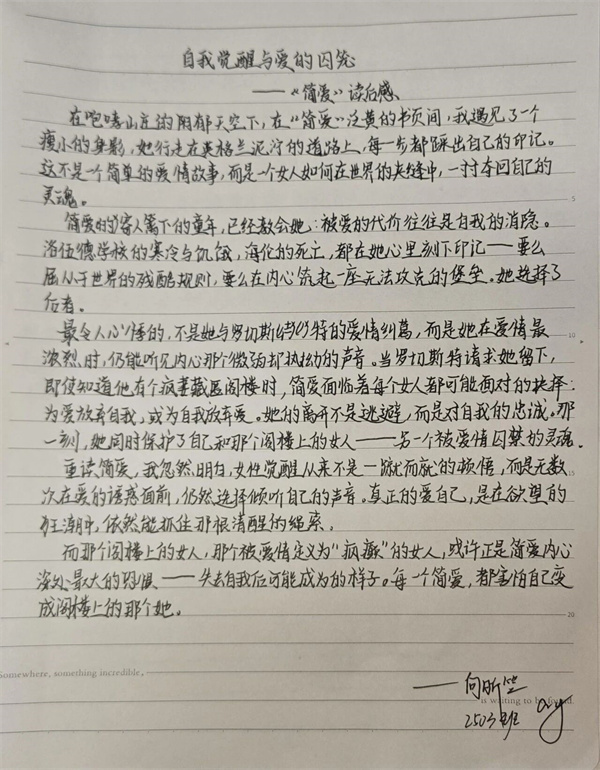 自我觉醒与爱的囚笼
——“简爱”读后感
在咆哮山庄的阴郁天空下,在“简爱”泛黄的书页间,我遇见了一个
瘦小的身影,她行走在英格兰泥泞的道路上,每一步都踩出自己的印记。
这不是一个简单的爱情故事,而是一个女人如何在世界的夹缝中,一寸寸夺回自己的
灵魂。
简爱的寄人篱下的童年,已经教会她:被爱的代价往往是自我的消隐。
洛伍德学校的寒冷与饥饿,海伦的死亡,都在她心里刻下印记——要么
屈从于世界的残酷规则,要么在内心筑起一座无法攻克的堡垒。她选择了
后者。
最令人心悸的,不是她与罗切斯特的爱情纠葛,而是她在爱情最
浓烈时,仍能听见内心那个微弱却执拗的声音。当罗切斯特请求她留下,
即使知道他有个疯妻藏匿阁楼时,简爱面临着每个女人都可能面对的抉择:
为爱放弃自我,或为自我放弃爱。她的离开不是逃避,而是对自我的忠诚。那
一刻,她同时保护了自己和那个阁楼上的女人——另一个被爱情囚禁的灵魂.
重读简爱,我忽然明白,女性觉醒从来不是一蹴而就的顿悟,而是无数
次在爱的诱惑面前,仍然选择倾听自己的声音。真正的爱自己,是在欲望的
狂潮中,依然能抓住那根清醒的绳索.
而那个阁楼上的女人,那个被爱情定义为“疯癫”的女人,或许正是简爱内心
深处最大的恐惧——失去自我后可能成为的样子。每一个简爱,都害怕自己变
成阁楼上的那个她。
Somewhere, something incredible,
——向昕
is waiting to be found.
2503班
5
10
15
20